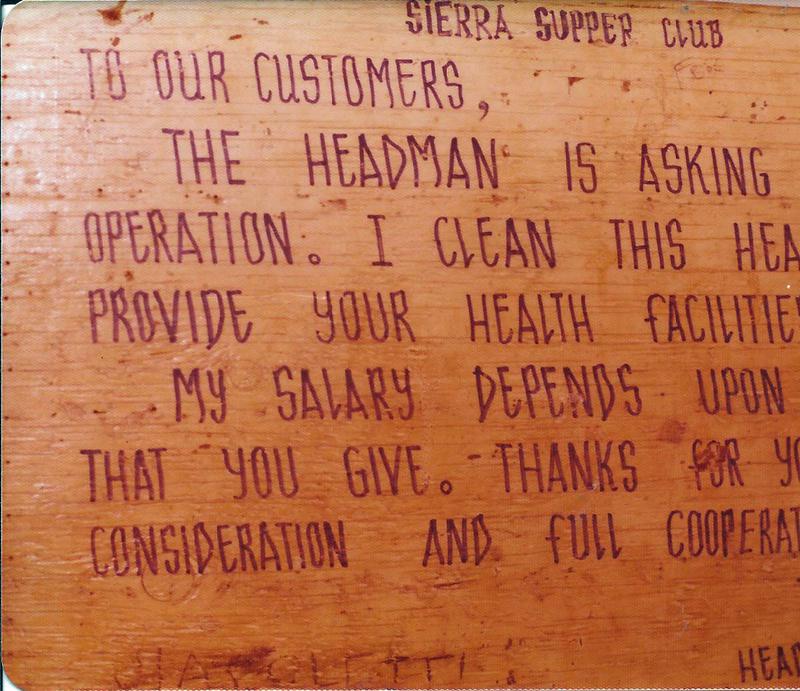 SIERRA SUPPER CLUB
TO OUR CUSTOMERS,
THE HEADMAN IS ASKING
OPERATION. I CLEAN THIS HEA
PROVIDE YOUR HEALTH FACILITIE
MY SALARY DEPENDS UPON
THAT YOU GIVE. THANKS FOR YO
CONSIDERATION AND FULL COOPERAT
HEAD